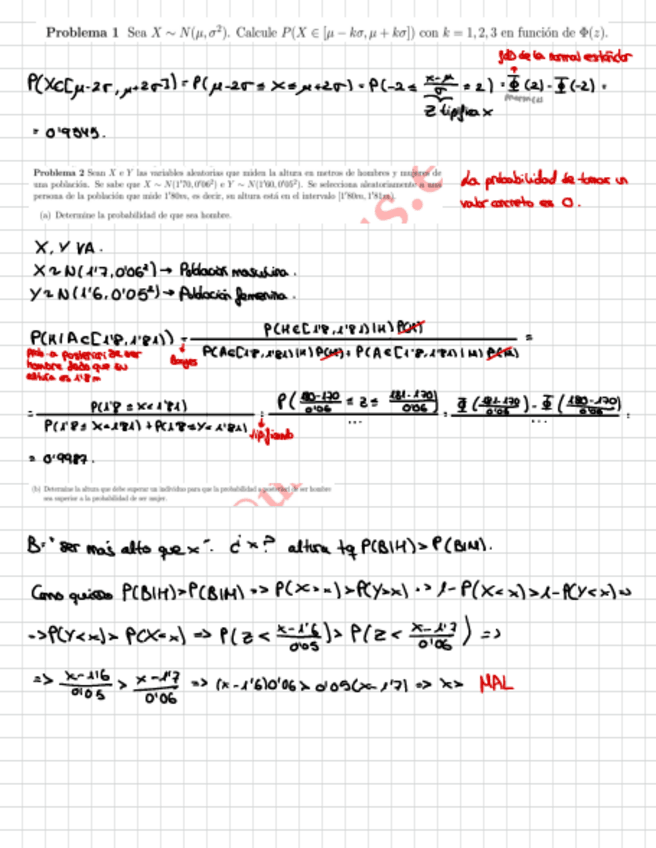 Problema 1 Sea X ∼ N(μ, σ²). Calcule P(X ∈ [μ − kσ, μ + kσ]) con k = 1, 2, 3 en función de Φ(z).
fdd de la normal estándar
P(X∈[μ-2σ, μ+2σ]) = P(μ-2σ ≤ X ≤ μ+2σ) = P(-2 ≤ (x-μ)/σ ≤ 2) = Φ(2) - Φ(-2) =
Z tipifica x
= 0'9545.
Problema 2 Sean X e Y las variables aleatorias que miden la altura en metros de hombres y mujeres de
una población. Se sabe que X ∼ N(1'70, 0'06²) e Y ∼ N(1'60, 0'05²). Se selecciona aleatoriamente a una
persona de la población que mide 1'80m, es decir, su altura está en el intervalo [1'80m, 1'81m)
La probabilidad de tomar un
valor concreto es 0.
(a) Determine la probabilidad de que sea hombre.
X, Y VA.
X ~ N(1'7, 0'06²) → Población masculina.
Y ~ N(1'6, 0'05²) → Población femenina.
P(H|A∈[1'8, 1'81)) = P(A∈[1'8, 1'81)|H) P(H) / P(A∈[1'8, 1'81)|H) P(H) + P(A∈[1'8, 1'81)|M) P(M) =
Prob a posteriori de ser
hombre dado que su
altura es 1'8m
Bayes
= P(1'8 ≤ X < 1'81) / P(1'8 ≤ X < 1'81) + P(1'8 ≤ Y < 1'81) = P((180-170)/0'06 ≤ Z ≤ (181-170)/0'06) / ... = Φ((181-170)/0'06) - Φ((180-170)/0'06) / ... =
tipificando
= 0'9987.
(b) Determine la altura que debe superar un individuo para que la probabilidad a posteriori de ser hombre
sea superior a la probabilidad de ser mujer.
B = "ser más alto que x". ¿x? altura tq P(B|H) > P(B|M).
Como quiero P(B|H) > P(B|M) => P(X > x) > P(Y > x) => 1 - P(X < x) > 1 - P(Y < x) =>
=> P(Y < x) > P(X < x) => P(Z < (x-1'6)/0'05) > P(Z < (x-1'7)/0'06) =>
=> (x-1'6)/0'05 > (x-1'7)/0'06 => (x-1'6)0'06 > 0'05(x-1'7) => x > MAL